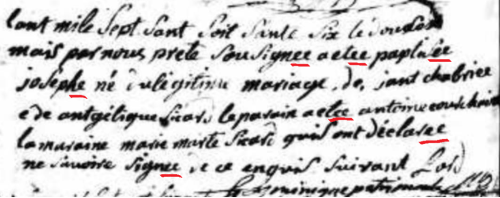 L'ant mile Sept Sant Soit Sante Six le dousan
mais par nous prete Sousignee a elee paptisée
josephe né du légitime mariage, de, jant chabriee
e de antgélique Sicard le parain a elee antoine
la maraine marie marte Sicard quis ont déclaree
ne Savoire Signee de ce enquis Suivant Lord